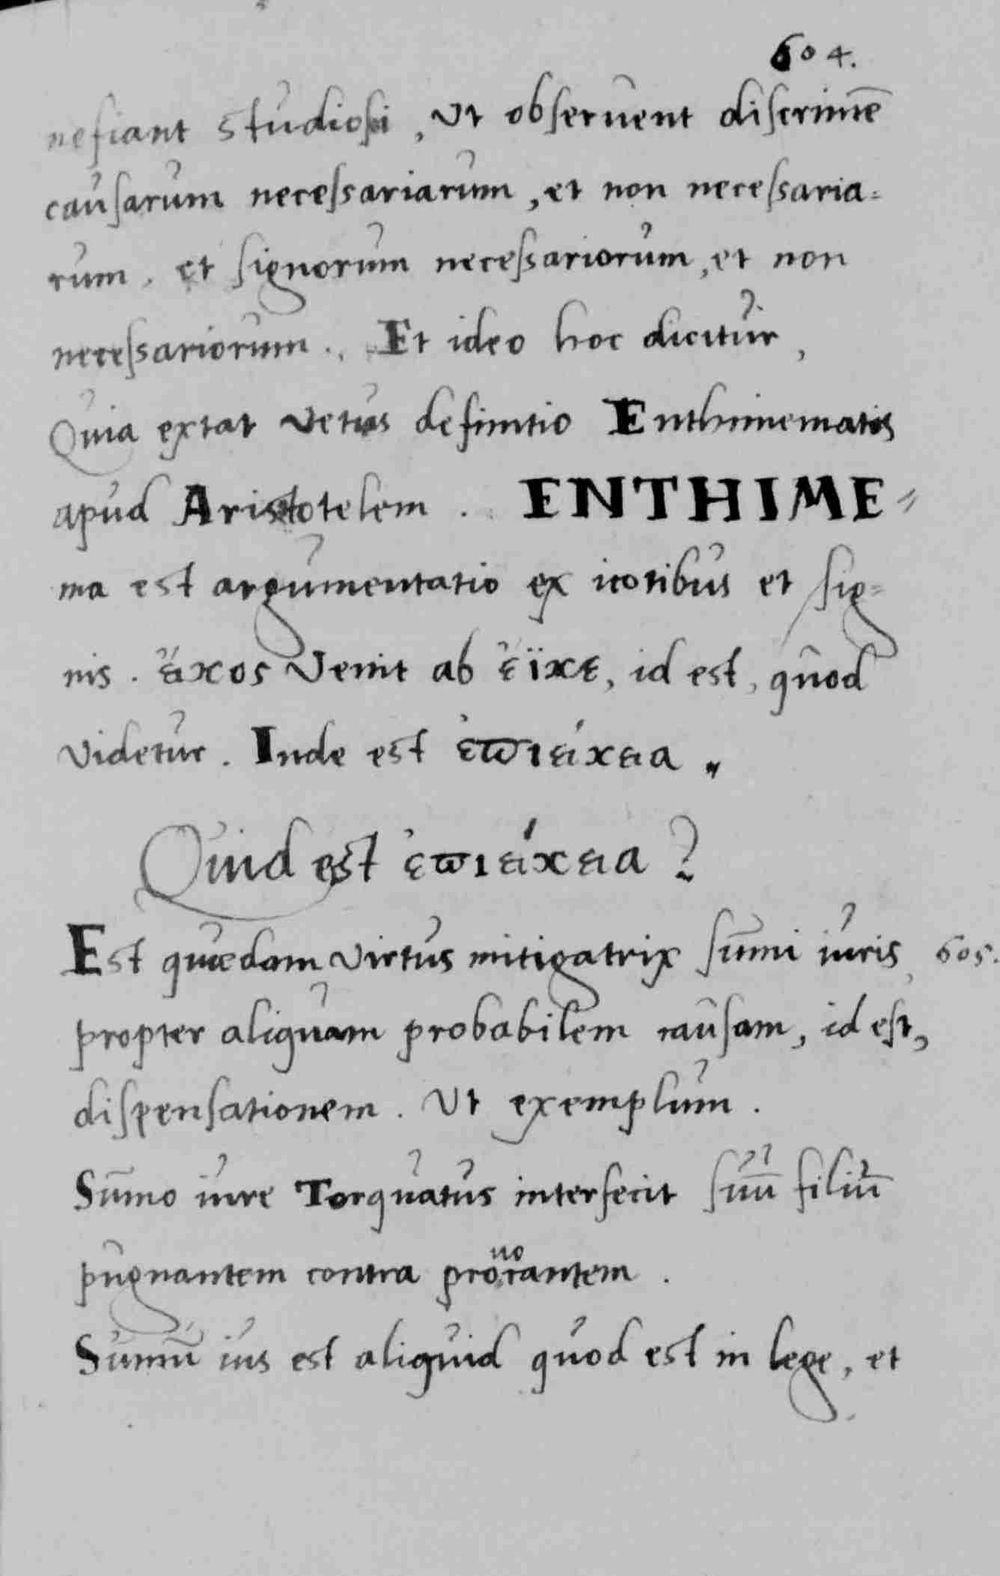 604.
nefiant studiosi, Ut obseruent discrimē
causarum necessariarum, et non necessaria=
rum. et signorum necessariorum, et non
necessariorum. Et ideo hoc dicitur,
Quia extat vetus definitio Enthimematis
apud Aristotelem. ENTHIME=
ma est argumentatio ex icotibus et sig=
nis. εἴκος venit ab εἶϊκε, id est, quod
videtur. Inde est ἐπιείκεια.
Quid est ἐπιείκεια?
Est quædam virtus mitigatrix sum̄i iuris 605.
propter aliquam probabilem causam, id est,
dispensationem. Ut exemplum.
Sum̄o iure Torquatus interfecit suū filiū
pugnantem contra prouocantem.
Summū ius est aliquid quod est in lege, et